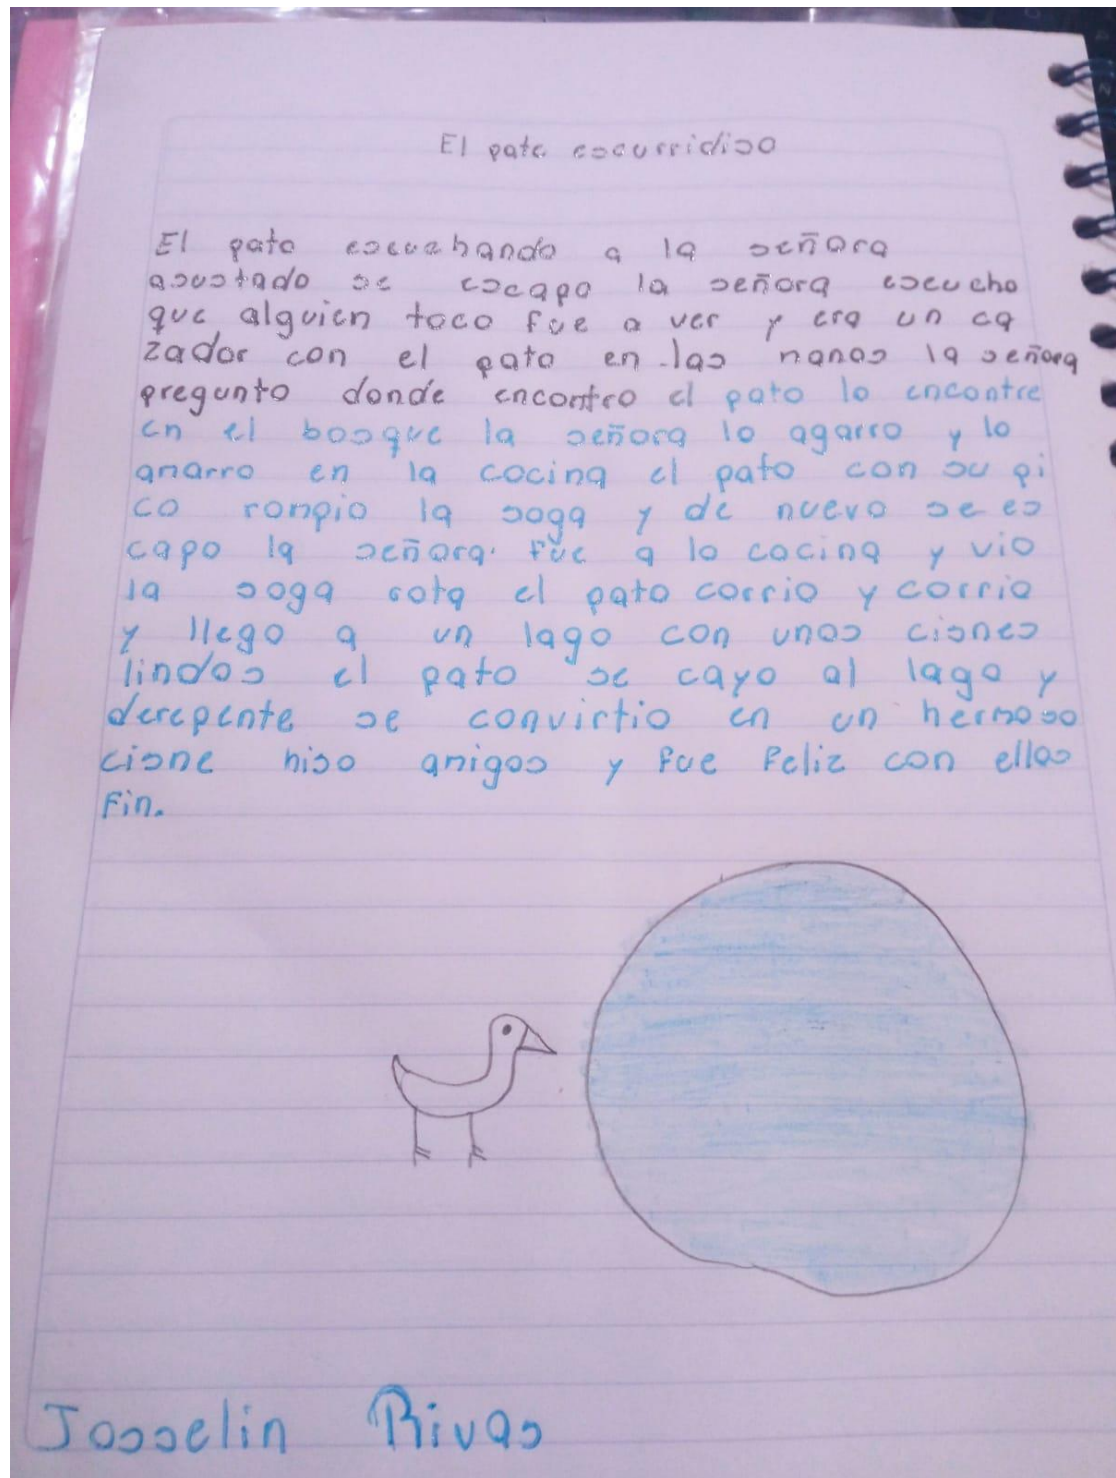 El pato escurridiso
El pato escuchando a la señora
asustado se escapo la señora escucho
que alguien toco fue a ver y era un ca
zador con el pato en las manos la señora
pregunto donde encontro el pato lo encontre
en el bosque la señora lo agarro y lo
amarro en la cocina el pato con su pi
co rompio la soga y de nuevo se es
capo la señora. fue a lo cocina y vio
la soga rota el pato corrio y corrio
y llego a un lago con unos cisnes
lindos el pato se cayo al lago y
derepente se convirtio en un hermoso
cisne hiso amigos y fue feliz con ellos
Fin.
Josselin Rivas